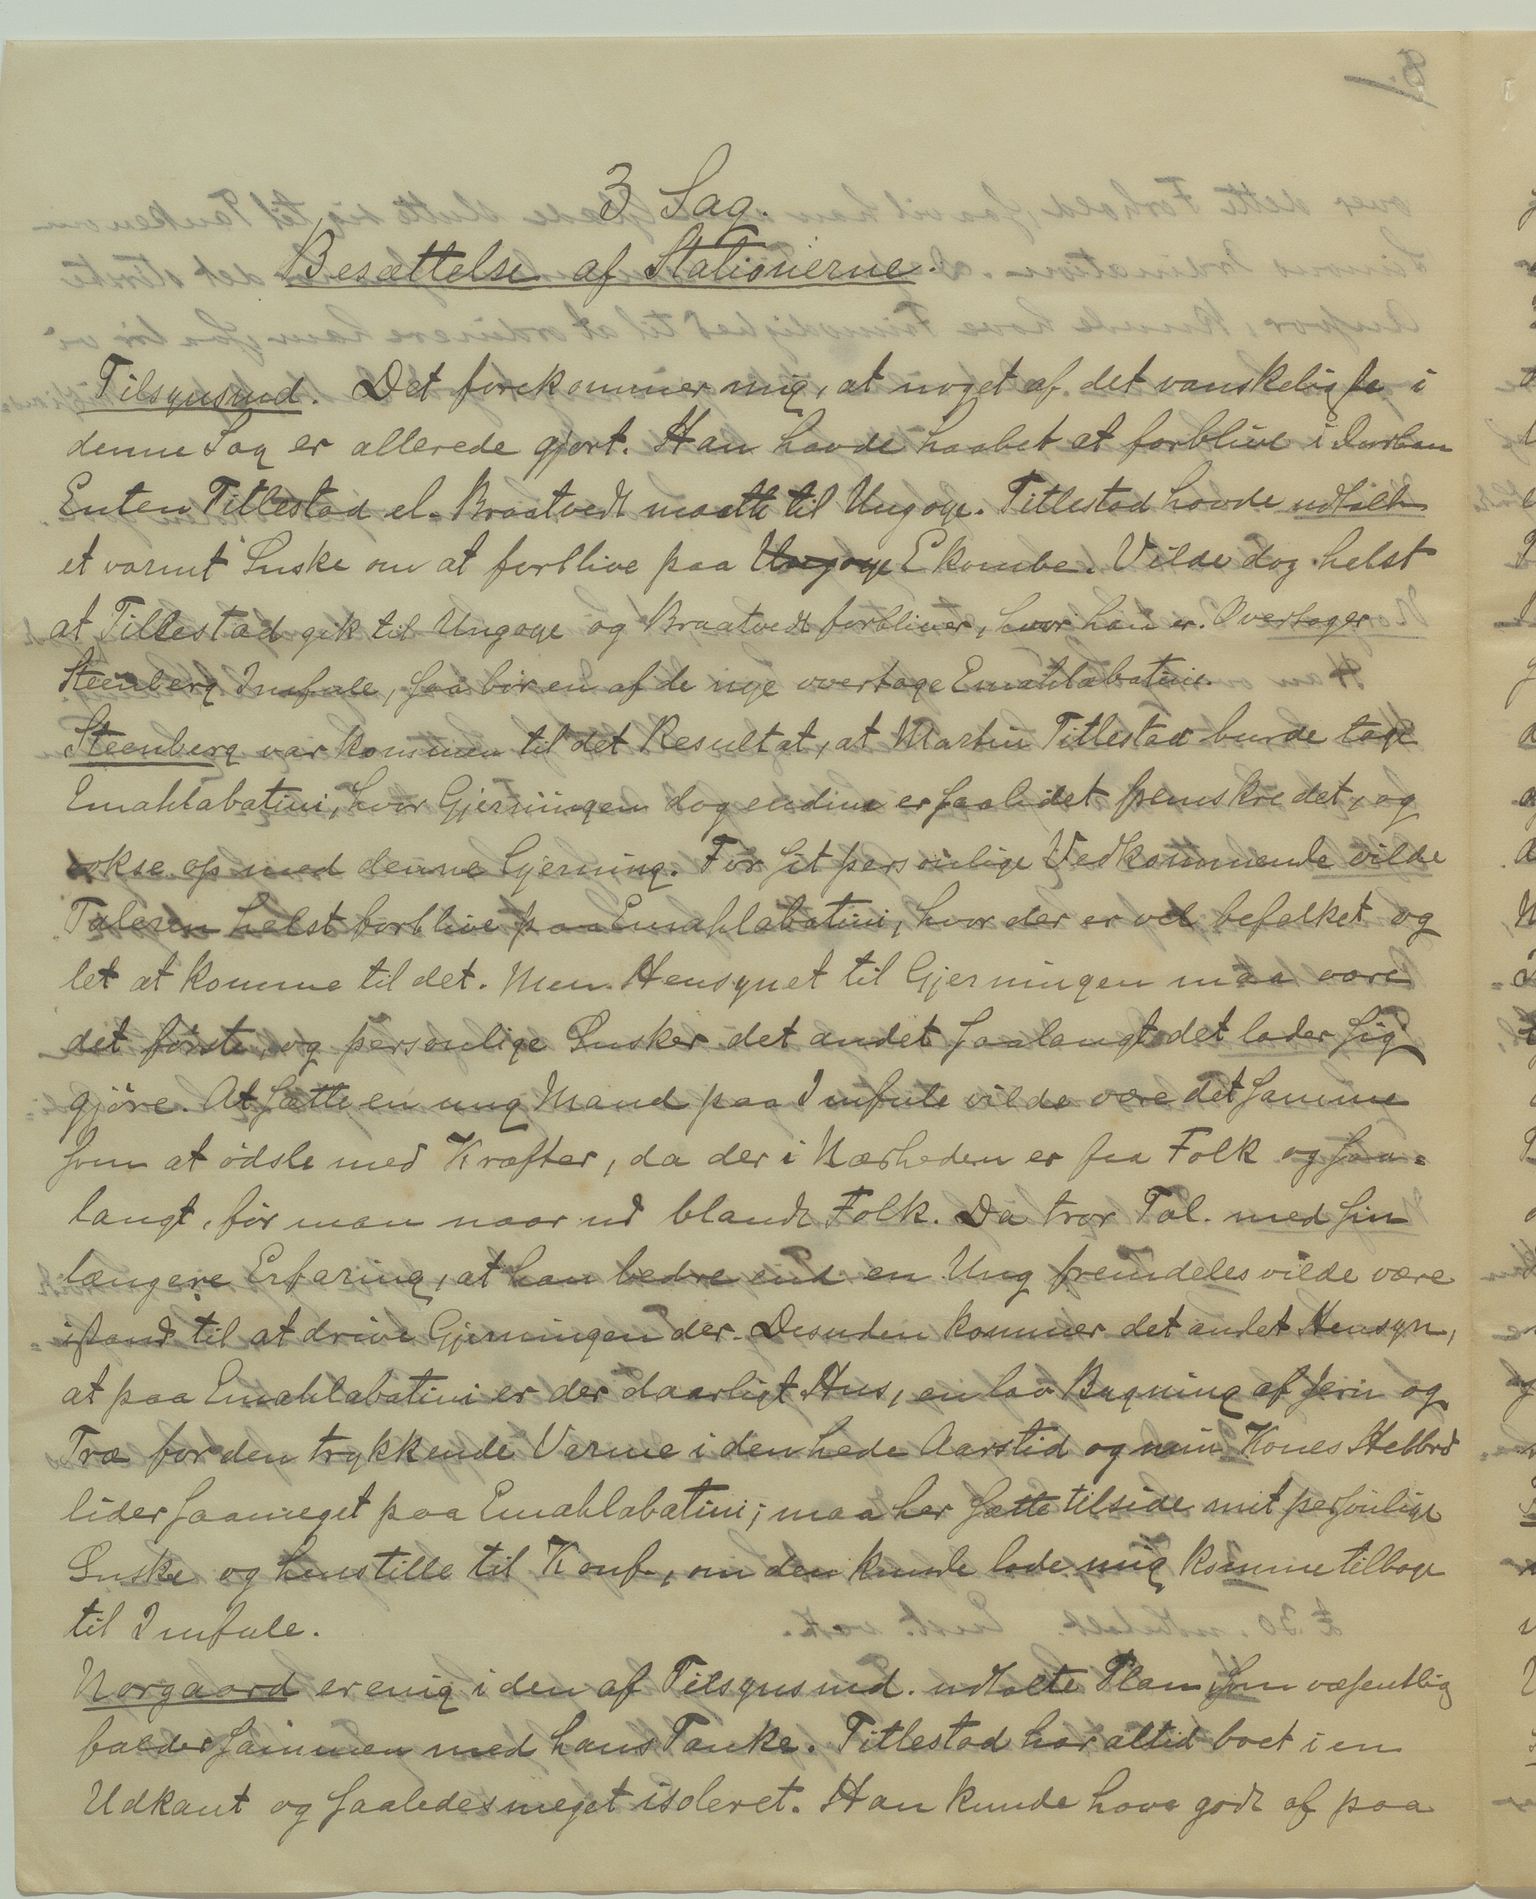 3 Sag.
Besættelse af Stationerne.
Tilsynsmd. Det forekommer mig, at noget af det vanskeligste i
denne Sag er allerede gjort. Han havde haabet at forblive i Durban
Enten Titlestad el. Braatvedt maatte til Ungoye. Titlestad havde udtalt
et varmt Önske om at forblive paa Ungoye Ekombe. Vilde dog helst
at Titlestad gik til Ungoye og Braatvedt forbliver, hvor han er. Overtager
Steenberg Imfule, saa bör en af de nye overtage Emahlabatini.
Steenberg var kommen til det Resultat, at Martin Titlestad burde tage
Emahlabatini, hvor Gjerningen dog endnu er saalidet fremskredet, og
vokse op med denne Gjerning. For sit personlige Vedkommende vilde
Taleren helst forblive paa Emahlabatini, hvor der er vel befolket og
let at komme til det. Men Hensynet til Gjerningen maa være
det förste, og personlige Önsker det andet saalangt det lader sig
gjöre. At sætte en ung Mand paa Imfule vilde være det samme
som at ödsle med Kræfter, da der i Nærheden er faa Folk og saa-
langt, för man naar ud blandt Folk. Da tror Tal. med sin
længere Erfaring, at han bedre end en Ung fremdeles vilde være
istand til at drive Gjerningen der. Desuden kommer det andet Hensyn,
at paa Emahlabatini er der daarligt Hus, en lav Bygning af Jern og
Træ for den trykkende Varme i den hede Aarstid og min Kones Helbred
lider saameget paa Emahlabatini; maa her sætte tilside mit personlige
Önske og henstille til Konf., om den kunde lade mig komme tilbage
til Imfule.
Norgaard er enig i den af Tilsynsmd. udtalte Plan, som væsentlig
falder sammen med hans Tanke. Titlestad har altid boet i en
Udkant og saaledes meget isoleret. Han kunde have godt af paa